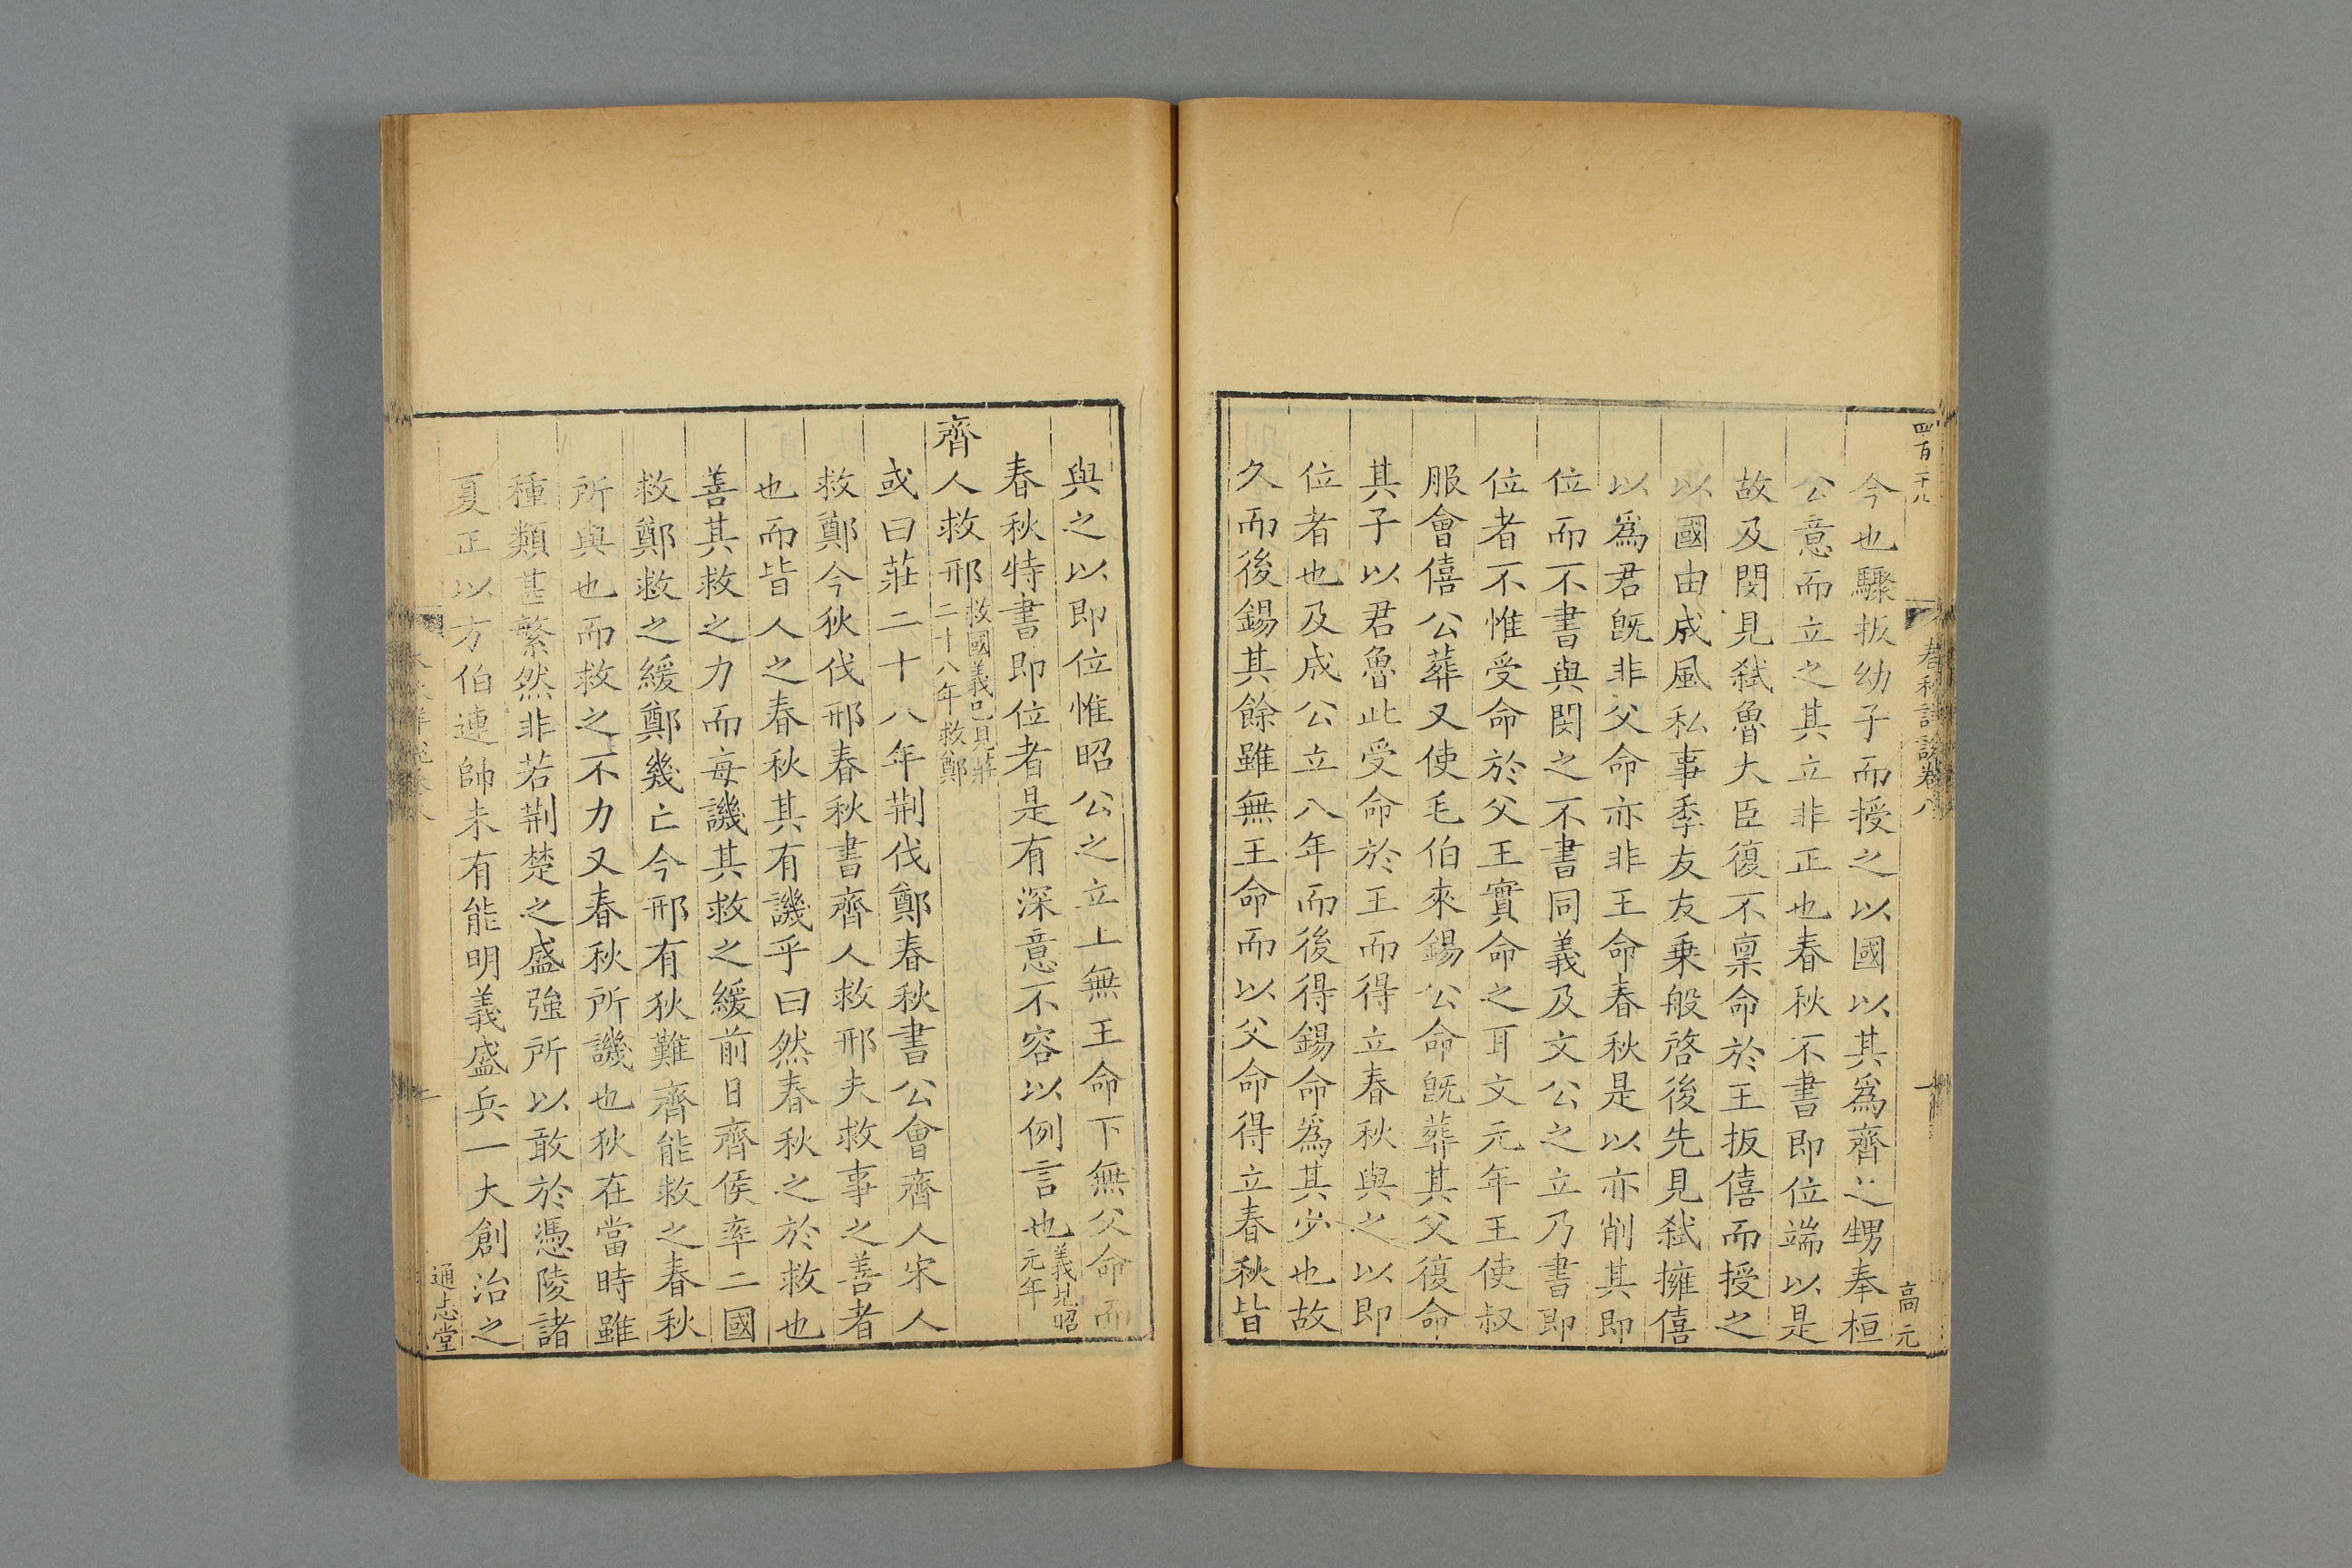 四百二十八
春秋詳說卷八
高元
今也驟扳幼子而授之以國以其爲齊之甥奉桓
公意而立之其立非正也春秋不書即位端以是
故及閔見弑魯大臣復不稟命於王扳僖而授之
以國由成風私事季友友乗般啓後先見弑擁僖
以爲君旣非父命亦非王命春秋是以亦削其即
位而不書與閔之不書同義及文公之立乃書即
位者不惟受命於父王實命之耳文元年王使叔
服會僖公葬又使毛伯來錫公命旣葬其父復命
其子以君魯此受命於王而得立春秋與之以即
位者也及成公立八年而後得錫命爲其少也故
久而後錫其餘雖無王命而以父命得立春秋皆
與之以即位惟昭公之立上無王命下無父命而
春秋特書即位者是有深意不容以例言也義見昭元年
齊人救邢救國義已見莊二十八年救鄭
或曰莊二十八年荆伐鄭春秋書公會齊人宋人
救鄭今狄伐邢春秋書齊人救邢夫救事之善者
也而皆人之春秋其有譏乎曰然春秋之於救也
善其救之力而每譏其救之緩前日齊侯率二國
救鄭救之緩鄭幾亡今邢有狄難齊能救之春秋
所與也而救之不力又春秋所譏也狄在當時雖
種類甚繁然非若荆楚之盛強所以敢於憑陵諸
夏正以方伯連帥未有能明義盛兵一大創治之
通志堂